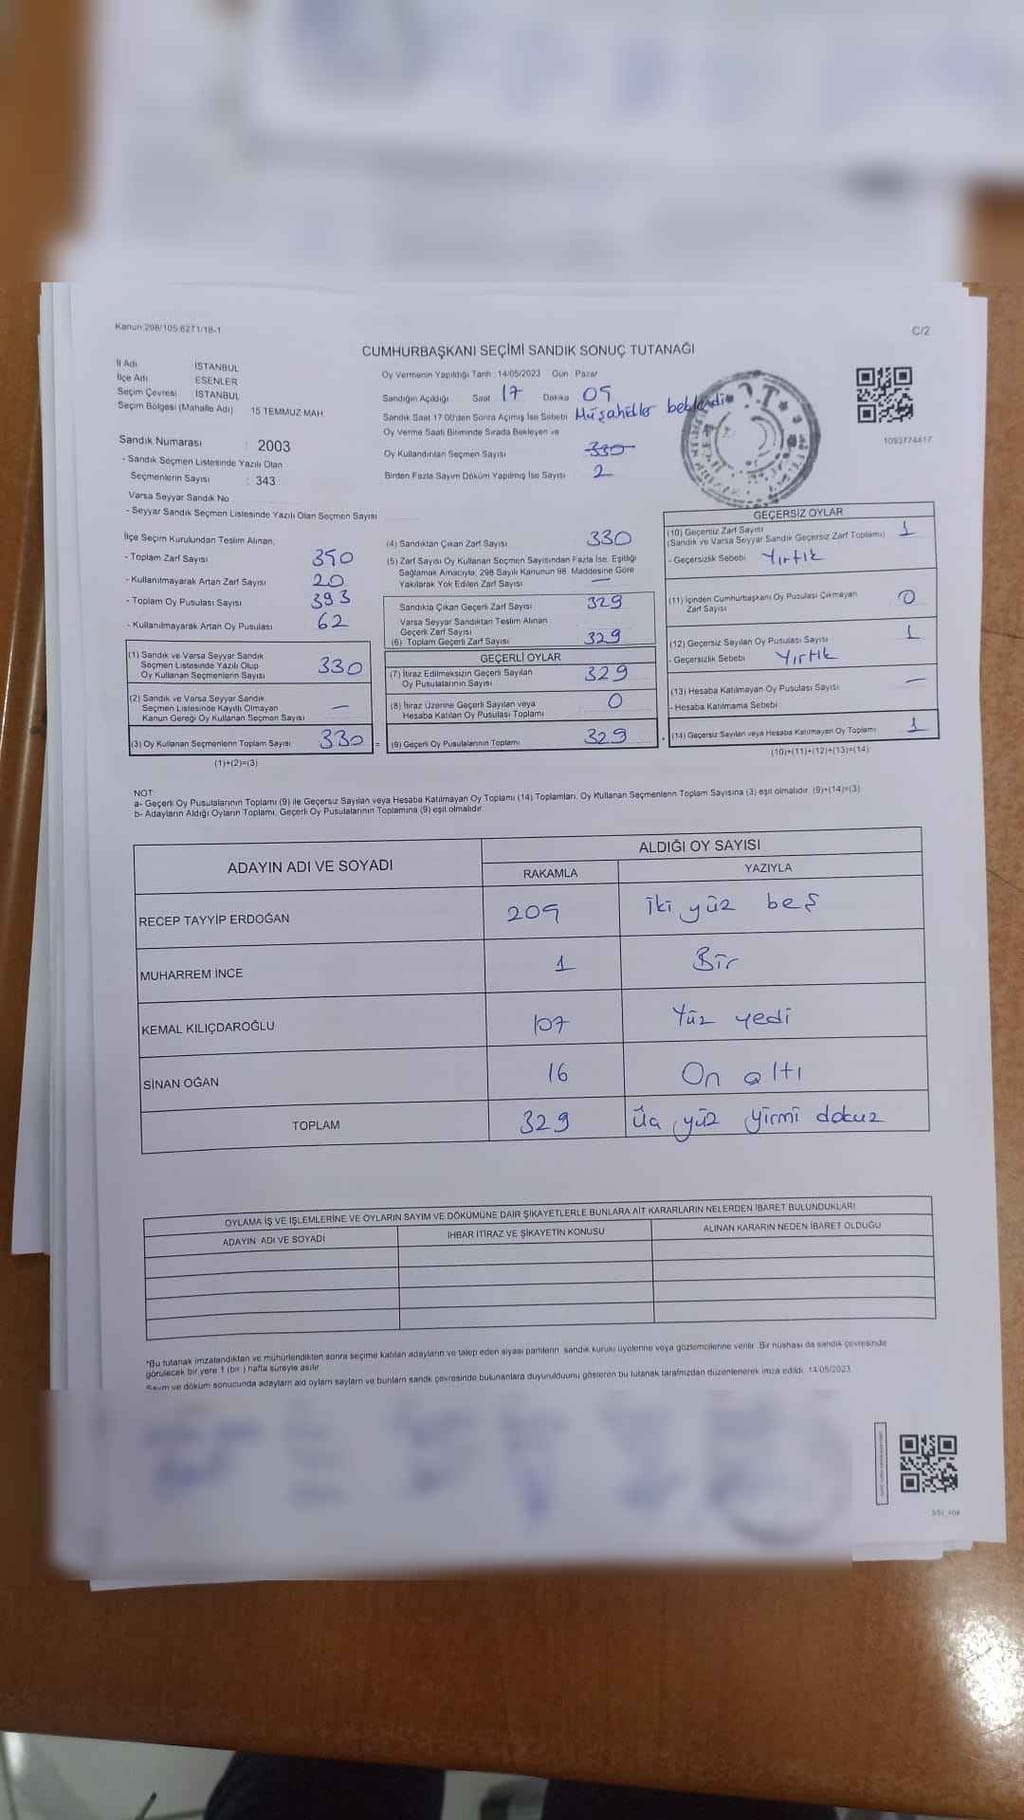 Kanun:298/105;6271/18-1
C/2
CUMHURBAŞKANI SEÇİMİ SANDIK SONUÇ TUTANAĞI
İl Adı İSTANBUL
İlçe Adı ESENLER
Seçim Çevresi İSTANBUL
Seçim Bölgesi (Mahalle Adı) 15 TEMMUZ MAH.
Sandık Numarası : 2003
- Sandık Seçmen Listesinde Yazılı Olan
Seçmenlerin Sayısı : 343
Varsa Seyyar Sandık No
- Seyyar Sandık Seçmen Listesinde Yazılı Olan Seçmen Sayısı
Oy Vermenin Yapıldığı Tarih : 14/05/2023 Gün Pazar
Sandığın Açıldığı Saat 17 Dakika 05
Sandık Saat 17:00'den Sonra Açımış İse Sebebi Müşahidler beklendi
Oy Verme Saati Bitiminde Sırada Bekleyen ve
Oy Kullandırılan Seçmen Sayısı 330
Birden Fazla Sayım Döküm Yapılmış İse Sayısı 2
1093774417
İlçe Seçim Kurulundan Teslim Alınan;
- Toplam Zarf Sayısı 350
- Kullanılmayarak Artan Zarf Sayısı 20
- Toplam Oy Pusulası Sayısı 393
- Kullanılmayarak Artan Oy Pusulası 62
(1) Sandık ve Varsa Seyyar Sandık
Seçmen Listesinde Yazılı Olup
Oy Kullanan Seçmenlerin Sayısı 330
(2) Sandık ve Varsa Seyyar Sandık
Seçmen Listesinde Kayıtlı Olmayan
Kanun Gereği Oy Kullanan Seçmen Sayısı —
(3) Oy Kullanan Seçmenlerin Toplam Sayısı 330 =
(1)+(2)=(3)
(4) Sandıktan Çıkan Zarf Sayısı 330
(5) Zarf Sayısı Oy Kullanan Seçmen Sayısından Fazla İse, Eşitliği
Sağlamak Amacıyla, 298 Sayılı Kanunun 98. Maddesine Göre
Yakılarak Yok Edilen Zarf Sayısı —
Sandıkta Çıkan Geçerli Zarf Sayısı 329
Varsa Seyyar Sandıktan Teslim Alınan
Geçerli Zarf Sayısı
(6) Toplam Geçerli Zarf Sayısı 329
GEÇERLİ OYLAR
(7) İtiraz Edilmeksizin Geçerli Sayılan
Oy Pusulalarının Sayısı 329
(8) İtiraz Üzerine Geçerli Sayılan veya
Hesaba Katılan Oy Pusulası Toplamı 0
(9) Geçerli Oy Pusulalarının Toplamı 329 +
GEÇERSİZ OYLAR
(10) Geçersiz Zarf Sayısı
(Sandık ve Varsa Seyyar Sandık Geçersiz Zarf Toplamı) 1
- Geçersizlik Sebebi Yırtık
(11) İçinden Cumhurbaşkanı Oy Pusulası Çıkmayan
Zarf Sayısı 0
(12) Geçersiz Sayılan Oy Pusulası Sayısı 1
- Geçersizlik Sebebi Yırtık
(13) Hesaba Katılmayan Oy Pusulası Sayısı —
- Hesaba Katılmama Sebebi
(14) Geçersiz Sayılan veya Hesaba Katılmayan Oy Toplamı 1
(10)+(11)+(12)+(13)=(14)
NOT
a- Geçerli Oy Pusulalarının Toplamı (9) ile Geçersiz Sayılan veya Hesaba Katılmayan Oy Toplamı (14) Toplamları, Oy Kullanan Seçmenlerin Toplam Sayısına (3) eşit olmalıdır. (9)+(14)=(3)
b- Adayların Aldığı Oyların Toplamı, Geçerli Oy Pusulalarının Toplamına (9) eşit olmalıdır.
ADAYIN ADI VE SOYADI ALDIĞI OY SAYISI
RAKAMLA YAZIYLA
RECEP TAYYİP ERDOĞAN 205 İki yüz beş
MUHARREM İNCE 1 Bir
KEMAL KILIÇDAROĞLU 107 Yüz yedi
SİNAN OĞAN 16 On altı
TOPLAM 329 Üç yüz yirmi dokuz
OYLAMA İŞ VE İŞLEMLERİNE VE OYLARIN SAYIM VE DÖKÜMÜNE DAİR ŞİKAYETLERLE BUNLARA AİT KARARLARIN NELERDEN İBARET BULUNDUKLARI
ADAYIN ADI VE SOYADI İHBAR İTİRAZ VE ŞİKAYETİN KONUSU ALINAN KARARIN NEDEN İBARET OLDUĞU
*Bu tutanak imzalandıktan ve mühürlendikten sonra seçime katılan adayların ve talep eden siyasi partilerin sandık kurulu üyelerine veya gözlemcilerine verilir. Bir nüshası da sandık çevresinde
görülecek bir yere 1 (bir ) hafta süreyle asılır.
Sayım ve döküm sonucunda adayların aldı oyların sayıları ve bunların sandık çevresinde bulunanlara duyurulduunu gösteren bu tutanak tarafımızdan düzenlenerek imza edildi. 14/05/2023